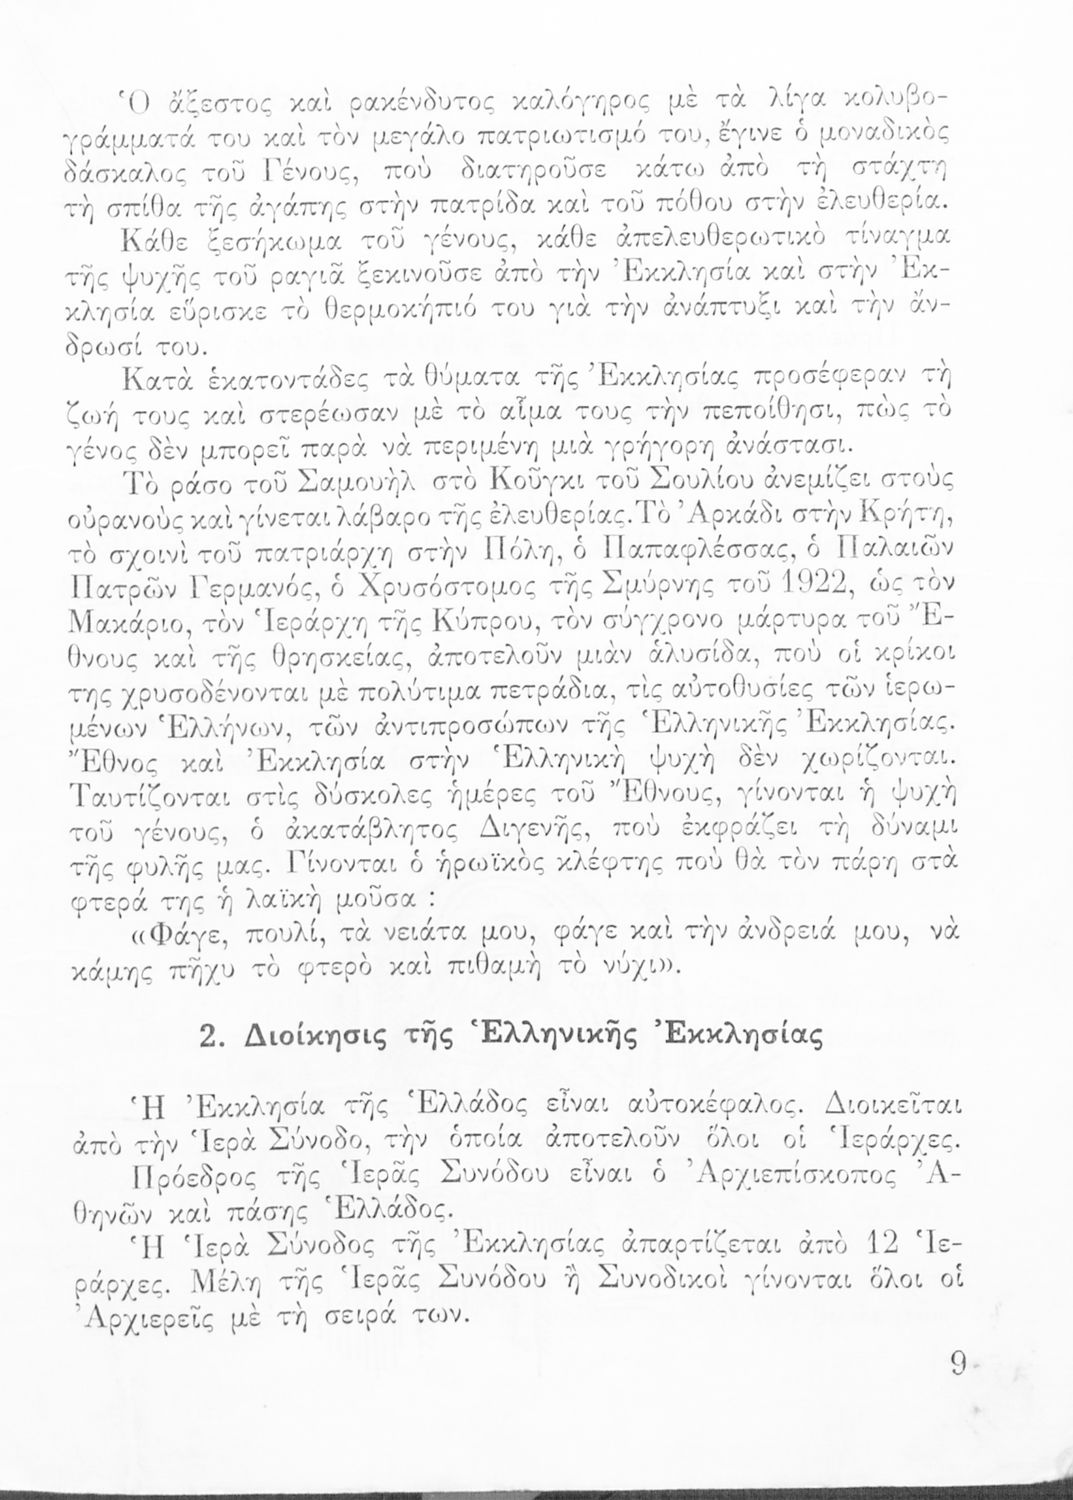 Ὁ ἄξεστος καὶ ρακένδυτος καλόγηρος μὲ τὰ λίγα κολυβο-
γράμματά του καὶ τὸν μεγάλο πατριωτισμό του, ἔγινε ὁ μοναδικὸς
δάσκαλος τοῦ Γένους, ποὺ διατηροῦσε κάτω ἀπὸ τὴ στάχτη
τὴ σπίθα τῆς ἀγάπης στὴν πατρίδα καὶ τοῦ πόθου στὴν ἐλευθερία.
Κάθε ξεσήκωμα τοῦ γένους, κάθε ἀπελευθερωτικὸ τίναγμα
τῆς ψυχῆς τοῦ ραγιᾶ ξεκινοῦσε ἀπὸ τὴν Ἐκκλησία καὶ στὴν Ἐκ-
κλησία εὕρισκε τὸ θερμοκήπιό του γιὰ τὴν ἀνάπτυξι καὶ τὴν ἄν-
δρωσί του.
Κατὰ ἑκατοντάδες τὰ θύματα τῆς Ἐκκλησίας προσέφεραν τὴ
ζωή τους καὶ στερέωσαν μὲ τὸ αἷμα τους τὴν πεποίθησι, πὼς τὸ
γένος δὲν μπορεῖ παρὰ νὰ περιμένη μιὰ γρήγορη ἀνάστασι.
Τὸ ράσο τοῦ Σαμουὴλ στὸ Κοῦγκι τοῦ Σουλίου ἀνεμίζει στοὺς
οὐρανοὺς καὶ γίνεται λάβαρο τῆς ἐλευθερίας. Τὸ Ἀρκάδι στὴν Κρήτη,
τὸ σχοινὶ τοῦ πατριάρχη στὴν Πόλη, ὁ Παπαφλέσσας, ὁ Παλαιῶν
Πατρῶν Γερμανός, ὁ Χρυσόστομος τῆς Σμύρνης τοῦ 1922, ὡς τὸν
Μακάριο, τὸν Ἱεράρχη τῆς Κύπρου, τὸν σύγχρονο μάρτυρα τοῦ Ἔ-
θνους καὶ τῆς θρησκείας, ἀποτελοῦν μιὰν ἁλυσίδα, ποὺ οἱ κρίκοι
της χρυσοδένονται μὲ πολύτιμα πετράδια, τὶς αὐτοθυσίες τῶν ἱερω-
μένων Ἑλλήνων, τῶν ἀντιπροσώπων τῆς Ἑλληνικῆς Ἐκκλησίας.
Ἔθνος καὶ Ἐκκλησία στὴν Ἑλληνικὴ ψυχὴ δὲν χωρίζονται.
Ταυτίζονται στὶς δύσκολες ἡμέρες τοῦ Ἔθνους, γίνονται ἡ ψυχὴ
τοῦ γένους, ὁ ἀκατάβλητος Διγενῆς, ποὺ ἐκφράζει τὴ δύναμι
τῆς φυλῆς μας. Γίνονται ὁ ἡρωϊκὸς κλέφτης ποὺ θὰ τὸν πάρη στὰ
φτερά της ἡ λαϊκὴ μοῦσα :
«Φάγε, πουλί, τὰ νειάτα μου, φάγε καὶ τὴν ἀνδρειά μου, νὰ
κάμης πῆχυ τὸ φτερὸ καὶ πιθαμὴ τὸ νύχι».
2. Διοίκησις τῆς Ἑλληνικῆς Ἐκκλησίας
Ἡ Ἐκκλησία τῆς Ἑλλάδος εἶναι αὐτοκέφαλος. Διοικεῖται
ἀπὸ τὴν Ἱερὰ Σύνοδο, τὴν ὁποία ἀποτελοῦν ὅλοι οἱ Ἱεράρχες.
Πρόεδρος τῆς Ἱερᾶς Συνόδου εἶναι ὁ Ἀρχιεπίσκοπος Ἀ-
θηνῶν καὶ πάσης Ἑλλάδος.
Ἡ Ἱερὰ Σύνοδος τῆς Ἐκκλησίας ἀπαρτίζεται ἀπὸ 12 Ἱε-
ράρχες. Μέλη τῆς Ἱερᾶς Συνόδου ἢ Συνοδικοὶ γίνονται ὅλοι οἱ
Ἀρχιερεῖς μὲ τὴ σειρά των.
9